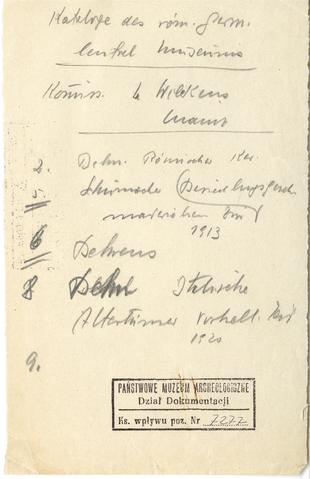 Kataloge des röm. germ.
Central Museums
Komiss. b Wilckens
Mainz
2. Behn. Römische Ker.
5 Schumacher Besiedlungsgesch
1913
6 Behrens
8 Behn Italische
Altertümer vorhell. Zeit
1920
9.
PAŃSTWOWE MUZEUM ARCHEOLOGICZNE
Dział Dokumentacji
Ks. wpływu poz. Nr 7277